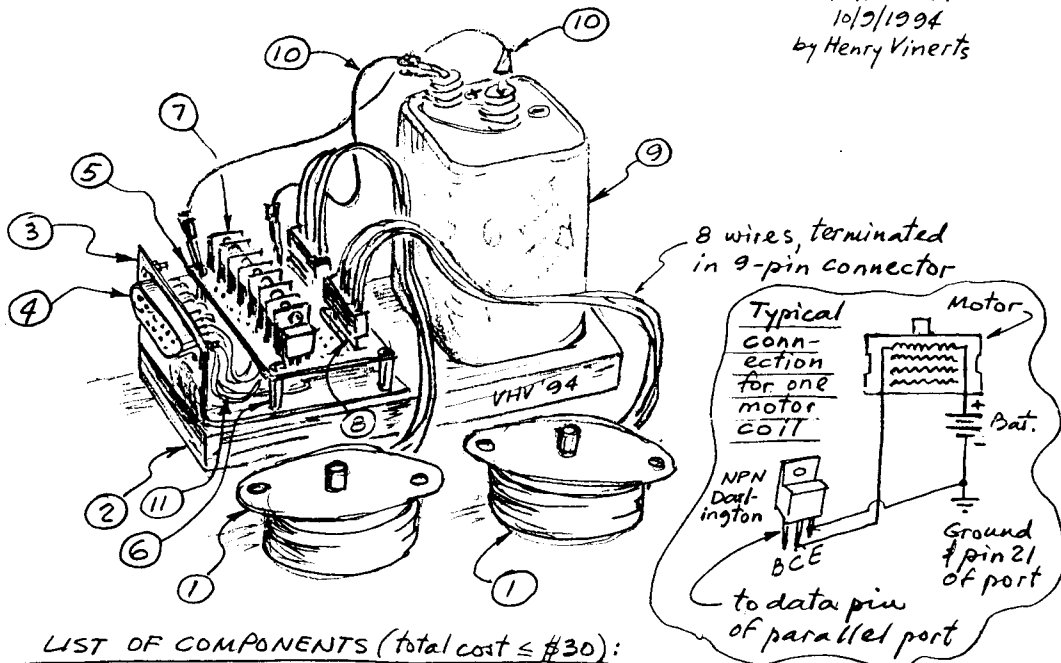 10/9/1994
by Henry Vinerts
10
10
7
9
5
3
4
8 wires, terminated
in 9-pin connector
Typical
conn-
ection
for one
motor
coil
Motor
+
-
Bat.
VHV '94
8
2
11
6
1
1
NPN
Darl-
ington
B C E
Ground
& pin 21
of port
to data pin
of parallel port
LIST OF COMPONENTS (total cost ≤ $30):